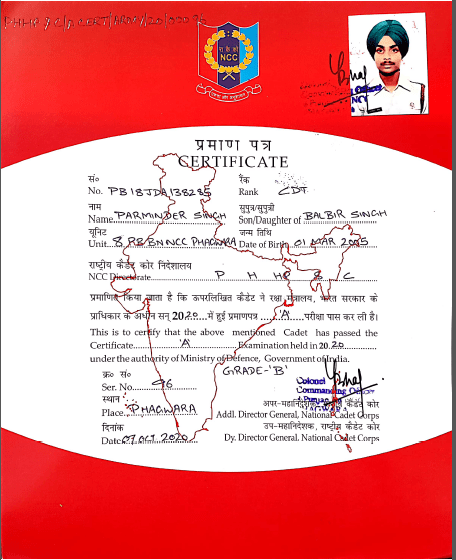 PHHP & C/A CERT/ARMY/20/00096
NCC
प्रमाण पत्र
CERTIFICATE
सं० रैंक
No. PB18JDA138285 Rank CDT
नाम सुपुत्र/सुपुत्री
Name PARMINDER SINGH Son/Daughter of BALBIR SINGH
यूनिट जन्म तिथि
Unit 8 PB BN NCC PHAGWARA Date of Birth 01 MAR 2005
राष्ट्रीय कैडेट कोर निदेशालय
NCC Directorate P H HP & C
प्रमाणित किया जाता है कि ऊपरलिखित कैडेट ने रक्षा मंत्रालय, भारत सरकार के
प्राधिकार के अधीन सन् 2020 में हुई प्रमाणपत्र 'A' परीक्षा पास कर ली है।
This is to certify that the above mentioned Cadet has passed the
Certificate 'A' Examination held in 2020
under the authority of Ministry of Defence, Government of India.
क्र० सं० GRADE-'B'
Ser. No. 96 Colonel
Commanding Officer
स्थान अपर-महानिदेशक, कैडेट कोर
Place PHAGWARA Addl. Director General, National Cadet Corps
दिनांक उप-महानिदेशक, राष्ट्रीय कैडेट कोर
Date 07 OCT 2020 Dy. Director General, National Cadet Corps